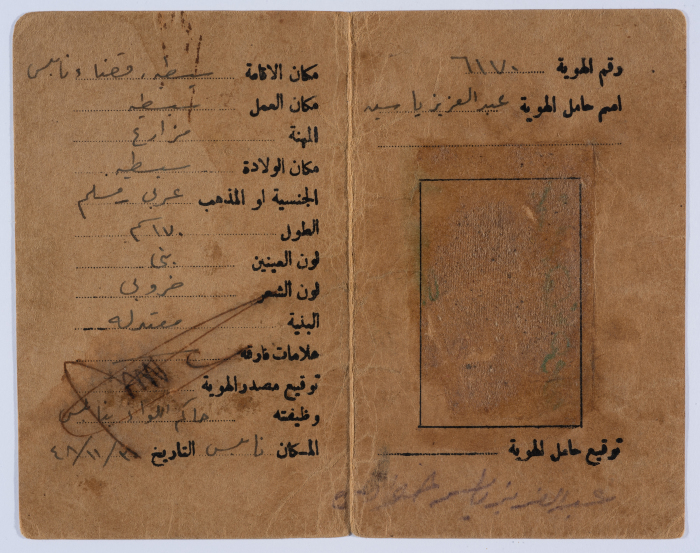 رقم الهوية ٦١٧٠
اسم حامل الهوية عبد العزيز ياسين
توقيع حامل الهوية
عبد العزيز ياسين
مكان الاقامة سبسطيه قضاء نابلس
مكان العمل سبسطيه
المهنة مزارع
مكان الولادة سبسطيه
الجنسية او المذهب عربي مسلم
الطول ١٧٠ سم
لون العينين بني
لون الشعر خروبي
البنية معتدله
علامات فارقه
توقيع مصدر الهوية
وظيفته حاكم لواء نابلس
المكان نابلس التاريخ ٤٨/١١/